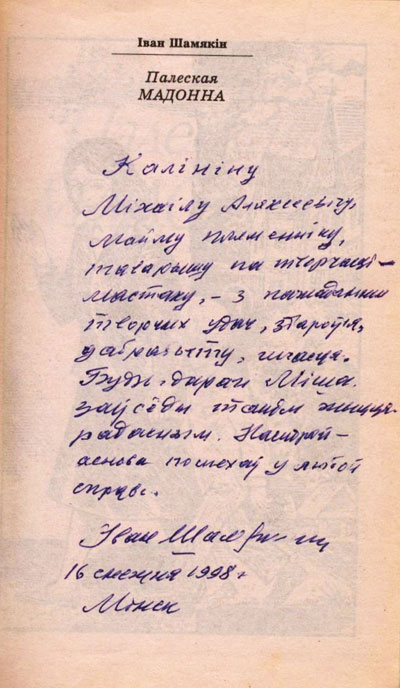 Іван Шамякін
Палеская
МАДОННА
Калініну
Міхаілу Аляксеевічу,
майму пляменніку,
таварышу па творчасці –
мастаку, – з пажаданнем
творчих удач, здароўя,
дабрабыту, шчасця.
Будзь, дарагі Міша.
заўсёды такім жыцця-
радасным. Настрой –
аснова поспехаў у любой
справе.
Іван Шамякін
16 снежня 1998 г
Мінск